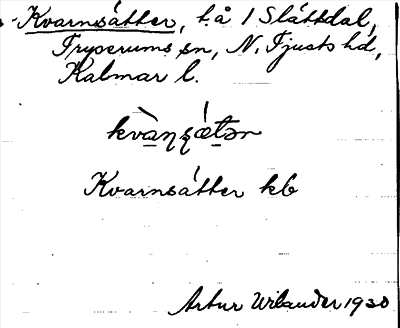 Kvarnsätter, t. å 1 Slättdal,
Tryserums sn, N. Tjusts hd,
Kalmar l.
kvàṇṣǽtər
Kvarnsätter kb
Artur Wilander 1930